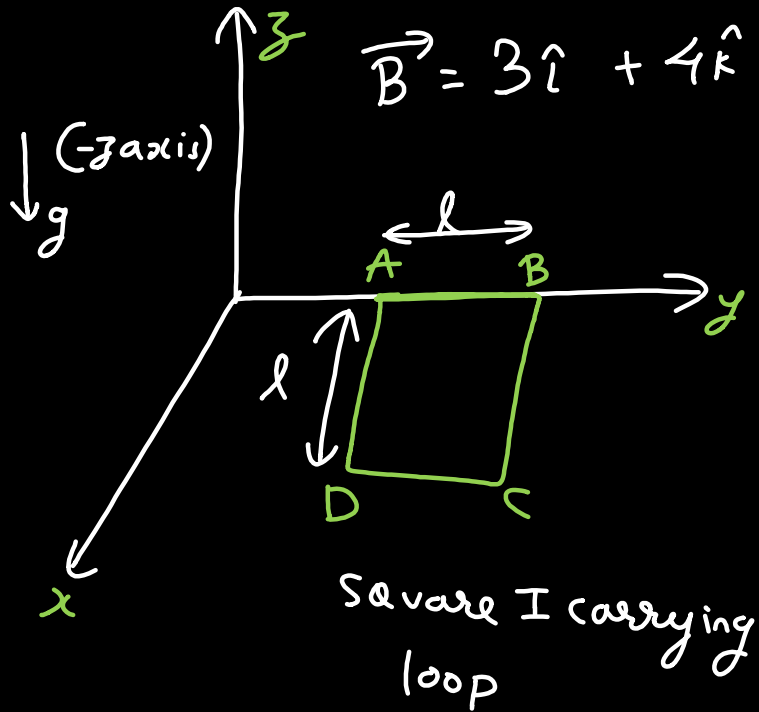 z
B⃗ = 3î + 4k̂
(-z axis)
g
l
A B
y
l
D C
x
Square I carrying
loop